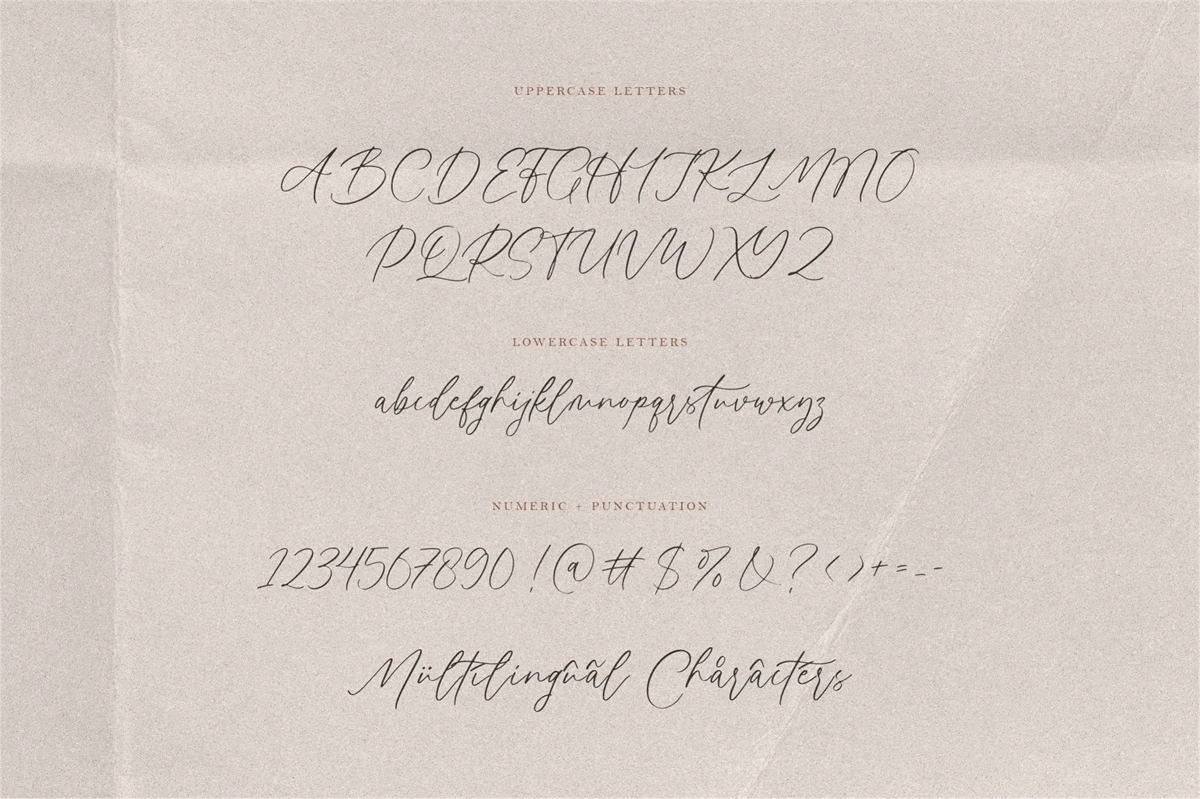 UPPERCASE LETTERS
ABCDEFGHIJKLMNO
PQRSTUVWXYZ
LOWERCASE LETTERS
abcdefghijklmnopqrstuvwxyz
NUMERIC + PUNCTUATION
1234567890 !@#$%&?()+=_-
Mültilingûãl Chåràctérs